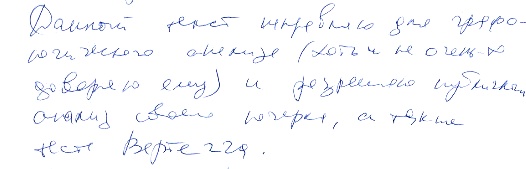 Данный текст направляю для графо-
логического анализа (хоть и не очень-то
доверяю ему) и разрешаю публичный
анализ своего почерка, а также
тест Вартегга.